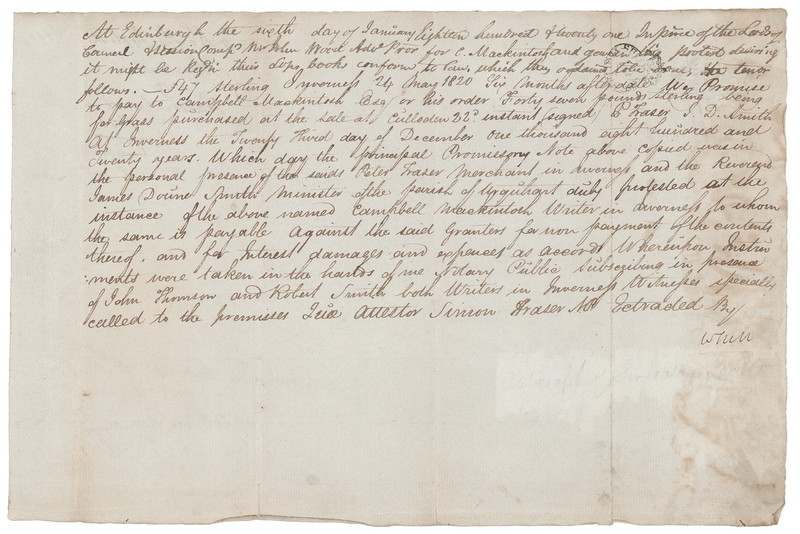 At Edinburgh the sixth day of January Eighteen hundred & twenty one In presence of the Lords of
Council & Session Comp^d Mr John Wood Adv^t Pror for C. Mackintosh and gave in this protest desiring
it might be Regd in their Lops books conform to law, which they ordained to be done, the tenor
follows. — £47 sterling Inverness 24 May 1820 Six months after date We Promise
to pay to Campbell Mackintosh Esq^r or his order Forty seven pounds sterling being
for Grass purchased at the sale at Culloden 22^d instant (signed) P Fraser J. D. Smith
At Inverness the Twenty Third day of December one thousand eight hundred and
Twenty years. Which day the principal Promissory Note above copied was in
the personal presence of the saids Peter Fraser Merchant in Inverness and the Reverend
James Doune Smith Minister of the parish of Urquhart duly protested at the
instance of the above named Campbell Mackintosh Writer in Inverness to whom
the same is payable Against the said Granters for non payment of the contents
thereof, and for Interest damages and expences as accords Whereupon Instru
:ments were taken in the hands of me Notary Public Subscribing in presence
of John Thomson and Robert Smith both Writers in Inverness Witnesses specially
called to the premisses Quæ Attestor Simon Fraser N.P. Extracted By